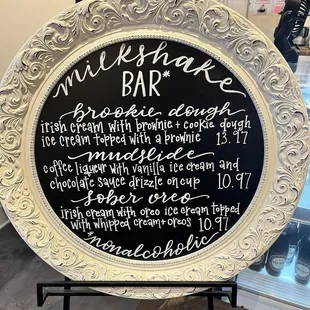 milkshake
BAR*
brookie dough
irish cream with brownie + cookie dough
ice cream topped with a brownie 13.97
mudslide
coffee liqueur with vanilla ice cream and
chocolate sauce drizzle on cup 10.97
sober oreo
irish cream with oreo ice cream topped
with whipped cream + oreos 10.97
*nonalcoholic